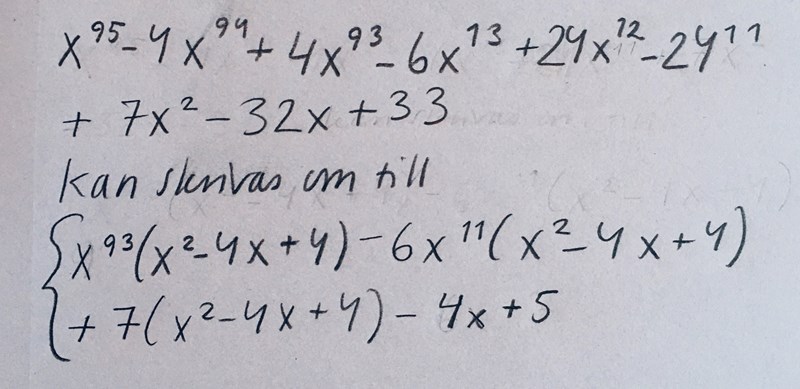 x⁹⁵ - 4x⁹⁴ + 4x⁹³ - 6x¹³ + 24x¹² - 24¹¹
+ 7x² - 32x + 33
kan skrivas om till
{x⁹³(x² - 4x + 4) - 6x¹¹(x² - 4x + 4)
+ 7(x² - 4x + 4) - 4x + 5